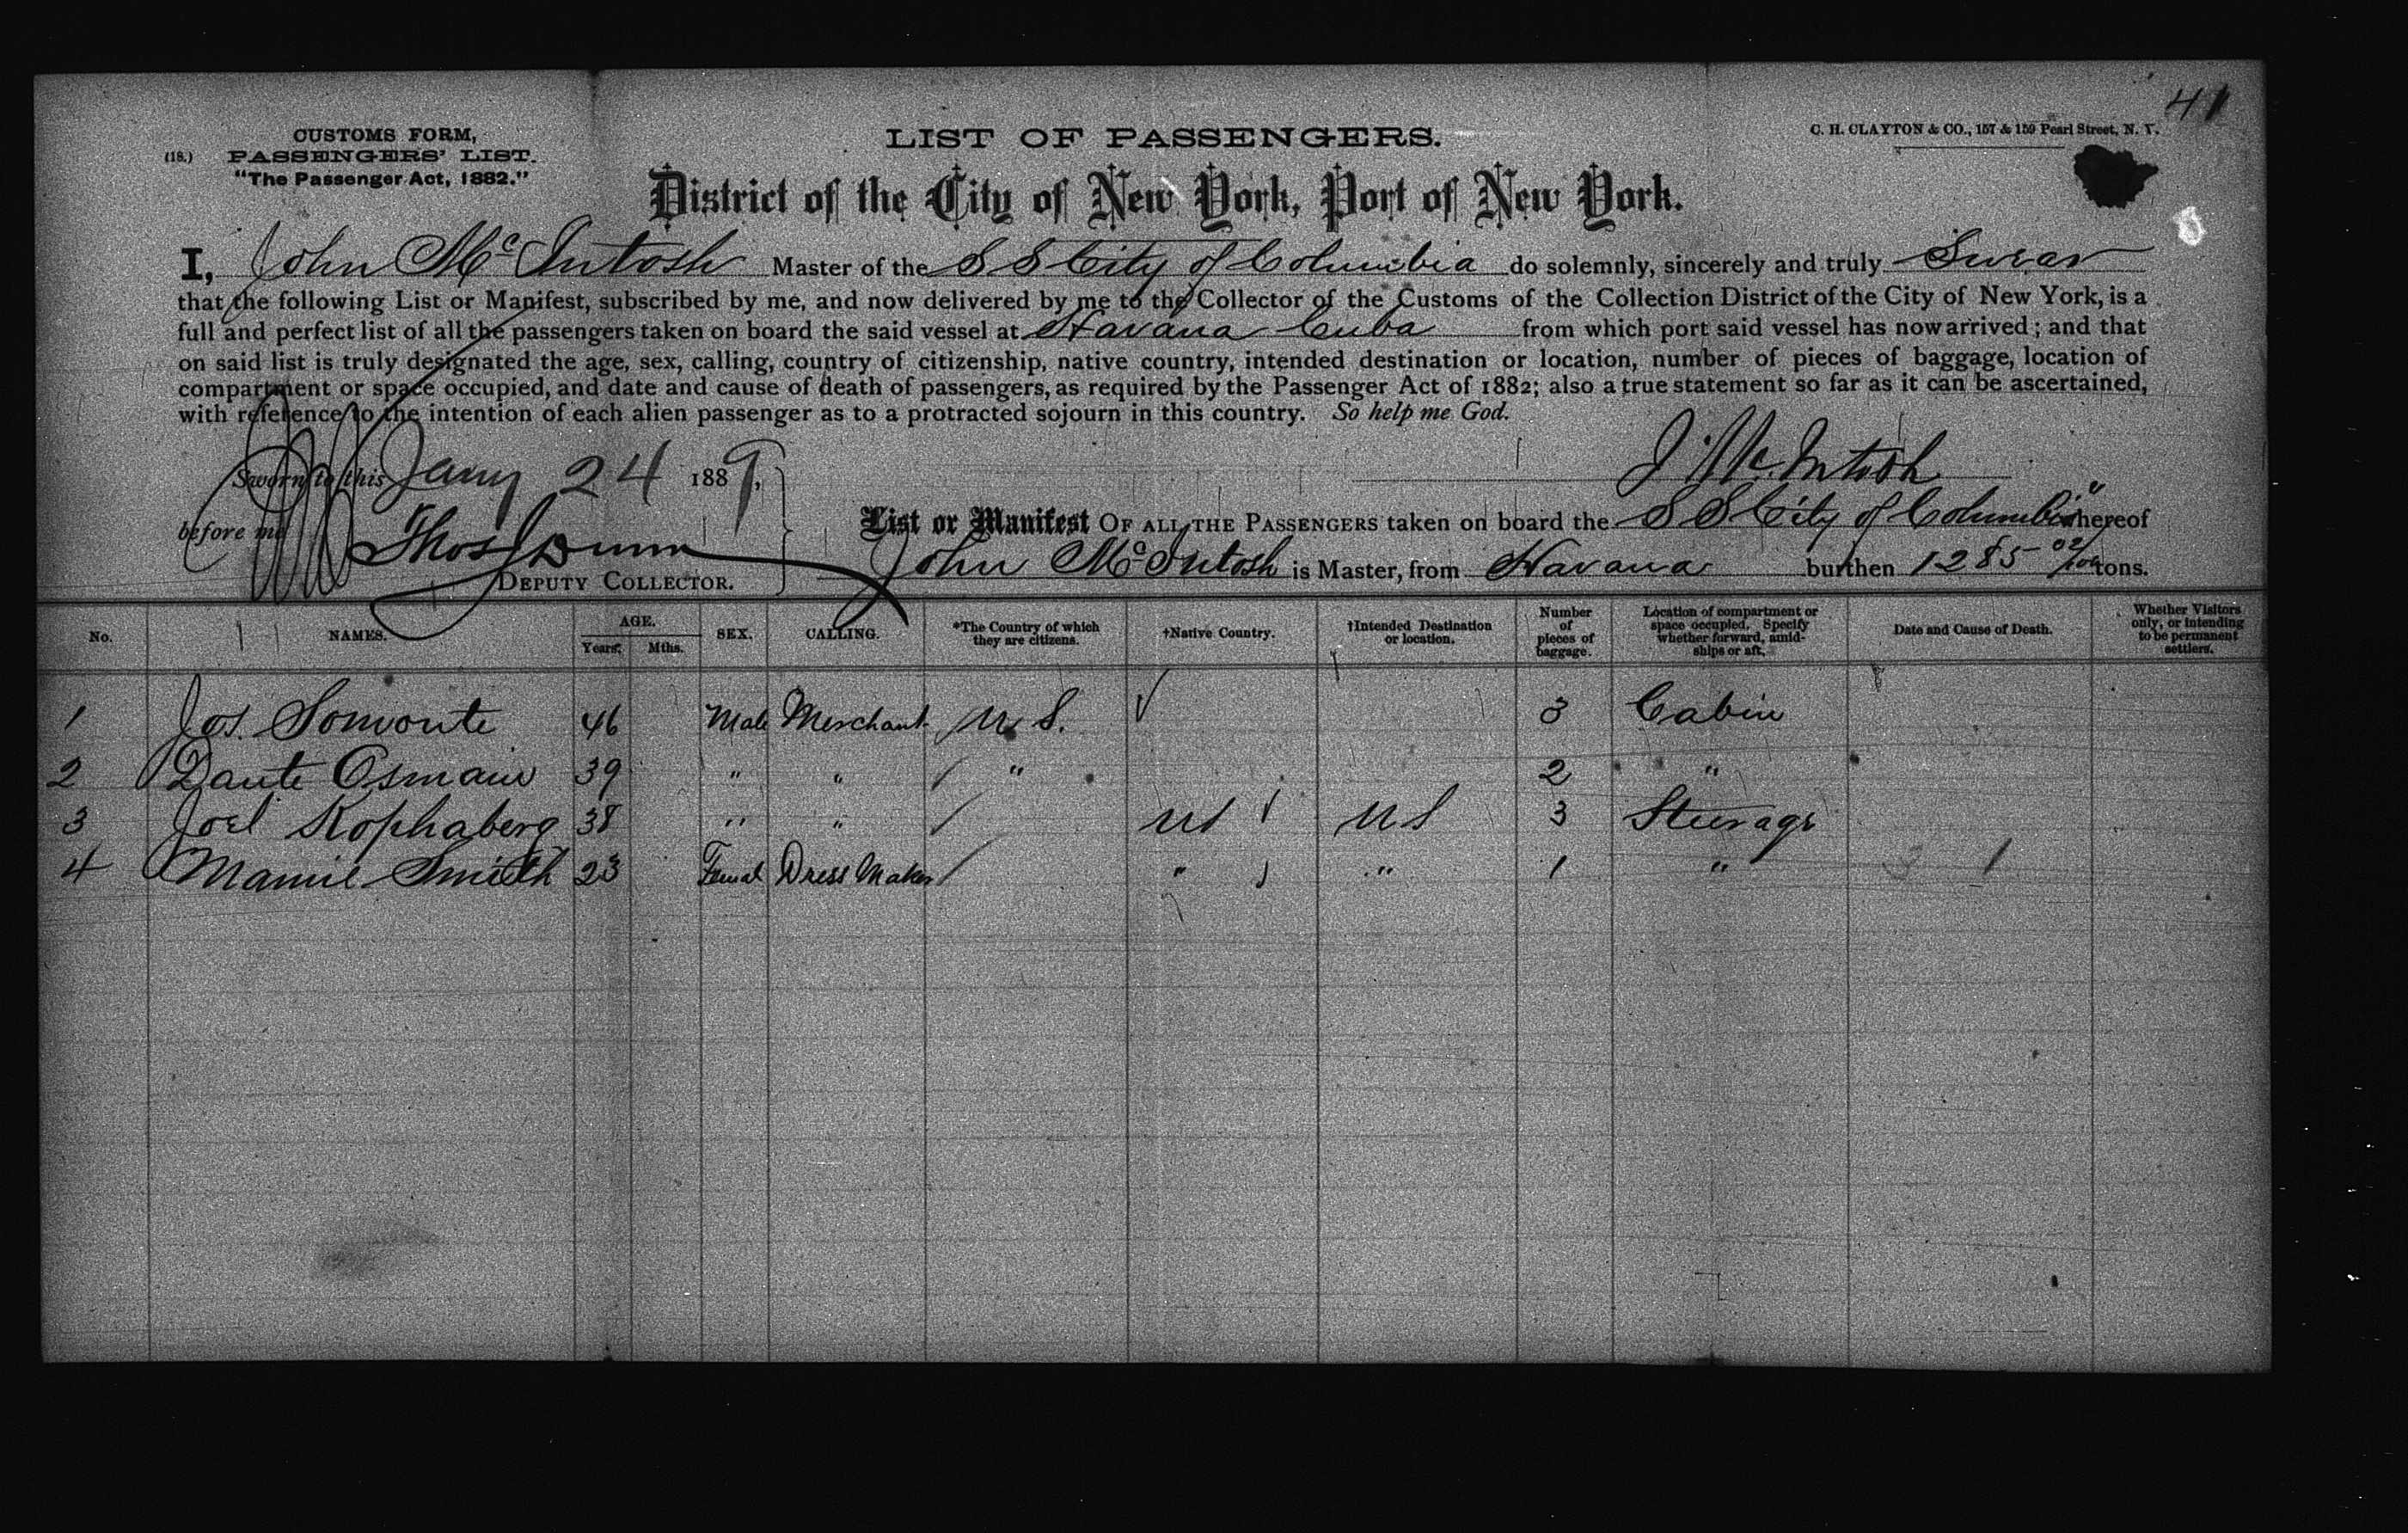 41
CUSTOMS FORM,
(18.) PASSENGERS' LIST.
"The Passenger Act, 1882."
LIST OF PASSENGERS.
C. H. CLAYTON & CO., 157 & 159 Pearl Street, N. Y.
District of the City of New York, Port of New York.
I, John McIntosh Master of the S S City of Columbia do solemnly, sincerely and truly Swear
that the following List or Manifest, subscribed by me, and now delivered by me to the Collector of the Customs of the Collection District of the City of New York, is a
full and perfect list of all the passengers taken on board the said vessel at Havana Cuba from which port said vessel has now arrived; and that
on said list is truly designated the age, sex, calling, country of citizenship, native country, intended destination or location, number of pieces of baggage, location of
compartment or space occupied, and date and cause of death of passengers, as required by the Passenger Act of 1882; also a true statement so far as it can be ascertained,
with reference to the intention of each alien passenger as to a protracted sojourn in this country. So help me God.
J McIntosh
Sworn to this Jany 24 1889,
before me Thos Dunn
DEPUTY COLLECTOR.
List or Manifest OF ALL THE PASSENGERS taken on board the S S City of Columbia whereof
John McIntosh is Master, from Havana burthen 1285 02/100 tons.
No. NAMES. AGE. Years. Mths. SEX. CALLING. *The Country of which they are citizens. †Native Country. †Intended Destination or location. Number of pieces of baggage. Location of compartment or space occupied. Specify whether forward, amidships or aft. Date and Cause of Death. Whether Visitors only, or intending to be permanent settlers.
1 Jos. Somonte 46 Male Merchant U. S. 3 Cabin
2 Dante Osmain 39 " " " 2 "
3 Joel Kophaberg 38 " " US US 3 Steerage
4 Mamie Smith 23 Femal Dress Maker " " 1 "